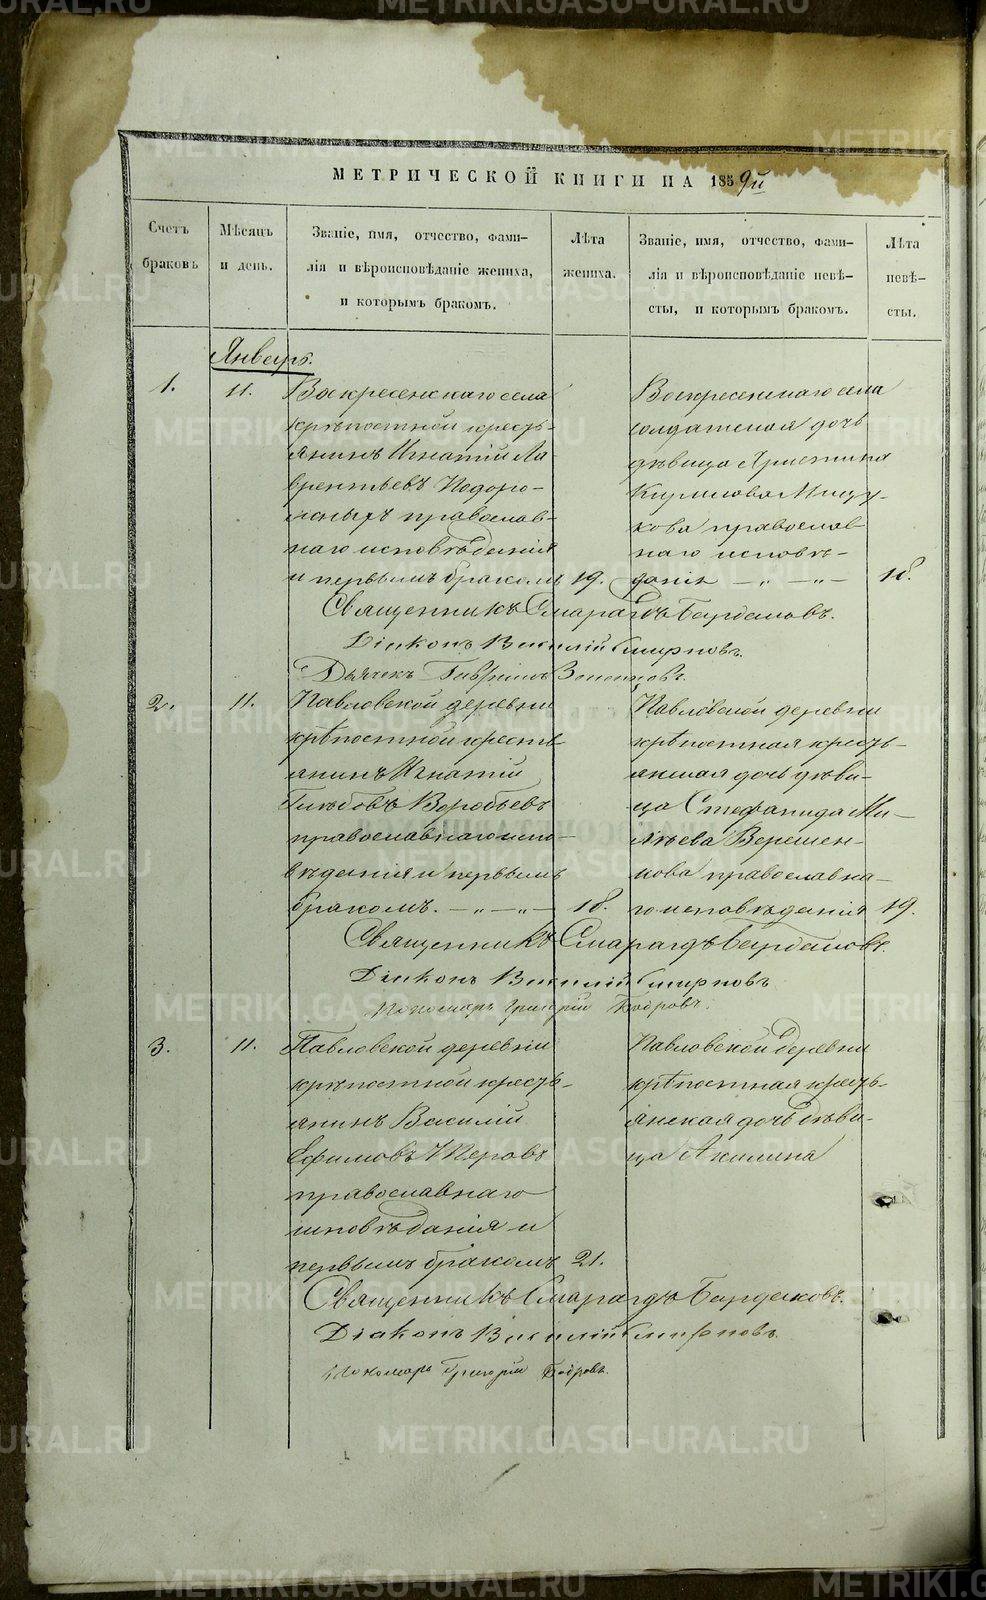 МЕТРИЧЕСКОЙ КНИГИ НА 1859й
Счетъ браковъ
Мѣсяцъ и день.
Званіе, имя, отчество, фами-
лія и вѣроисповѣданіе жениха,
и которымъ бракомъ.
Лѣта жениха.
Званіе, имя, отчество, фами-
лія и вѣроисповѣданіе невѣ-
сты, и которымъ бракомъ.
Лѣта невѣ-
сты.
Январь.
1. 11.
Воскресенскаго села
крѣпостной кресть-
янинъ Игнатій Ла-
врентьевъ Подоро-
жныхъ православ-
наго исповѣданія
и первымъ бракомъ 19.
Воскресенскаго села
солдатская дочь
дѣвица Христина
Кирилова
кова православ
наго исповѣ-
данія — „ — „ — 18.
Священникъ Смарагдъ
Діаконъ Василій Смирновъ.
Дьячекъ Гавріилъ
2. 11.
Павловской деревни
крѣпостной кресть
янинъ Игнатій
Глѣбовъ Воробьевъ
православнаго испо-
вѣданія и первымъ
бракомъ. — „ — „ — 18.
Павловской деревни
крѣпостная кресть-
янская дочь дѣви-
ца Стефанида Ми-
хѣева
нова православна-
го исповѣданія 19.
Священникъ Смарагдъ
Діаконъ Василій Смирновъ
Пономарь Григорій Бобровъ.
3. 11.
Павловской деревни
крѣпостной кресть-
янинъ Василій
Ефимовъ
православнаго
исповѣданія и
первымъ бракомъ 21.
Павловской деревни
крѣпостная кресть-
янская дочь дѣви-
ца Акилина
Священникъ Смарагдъ
Діаконъ Василій Смирновъ.
Пономарь Григорій Бобровъ.
METRIKI.GASO-URAL.RU